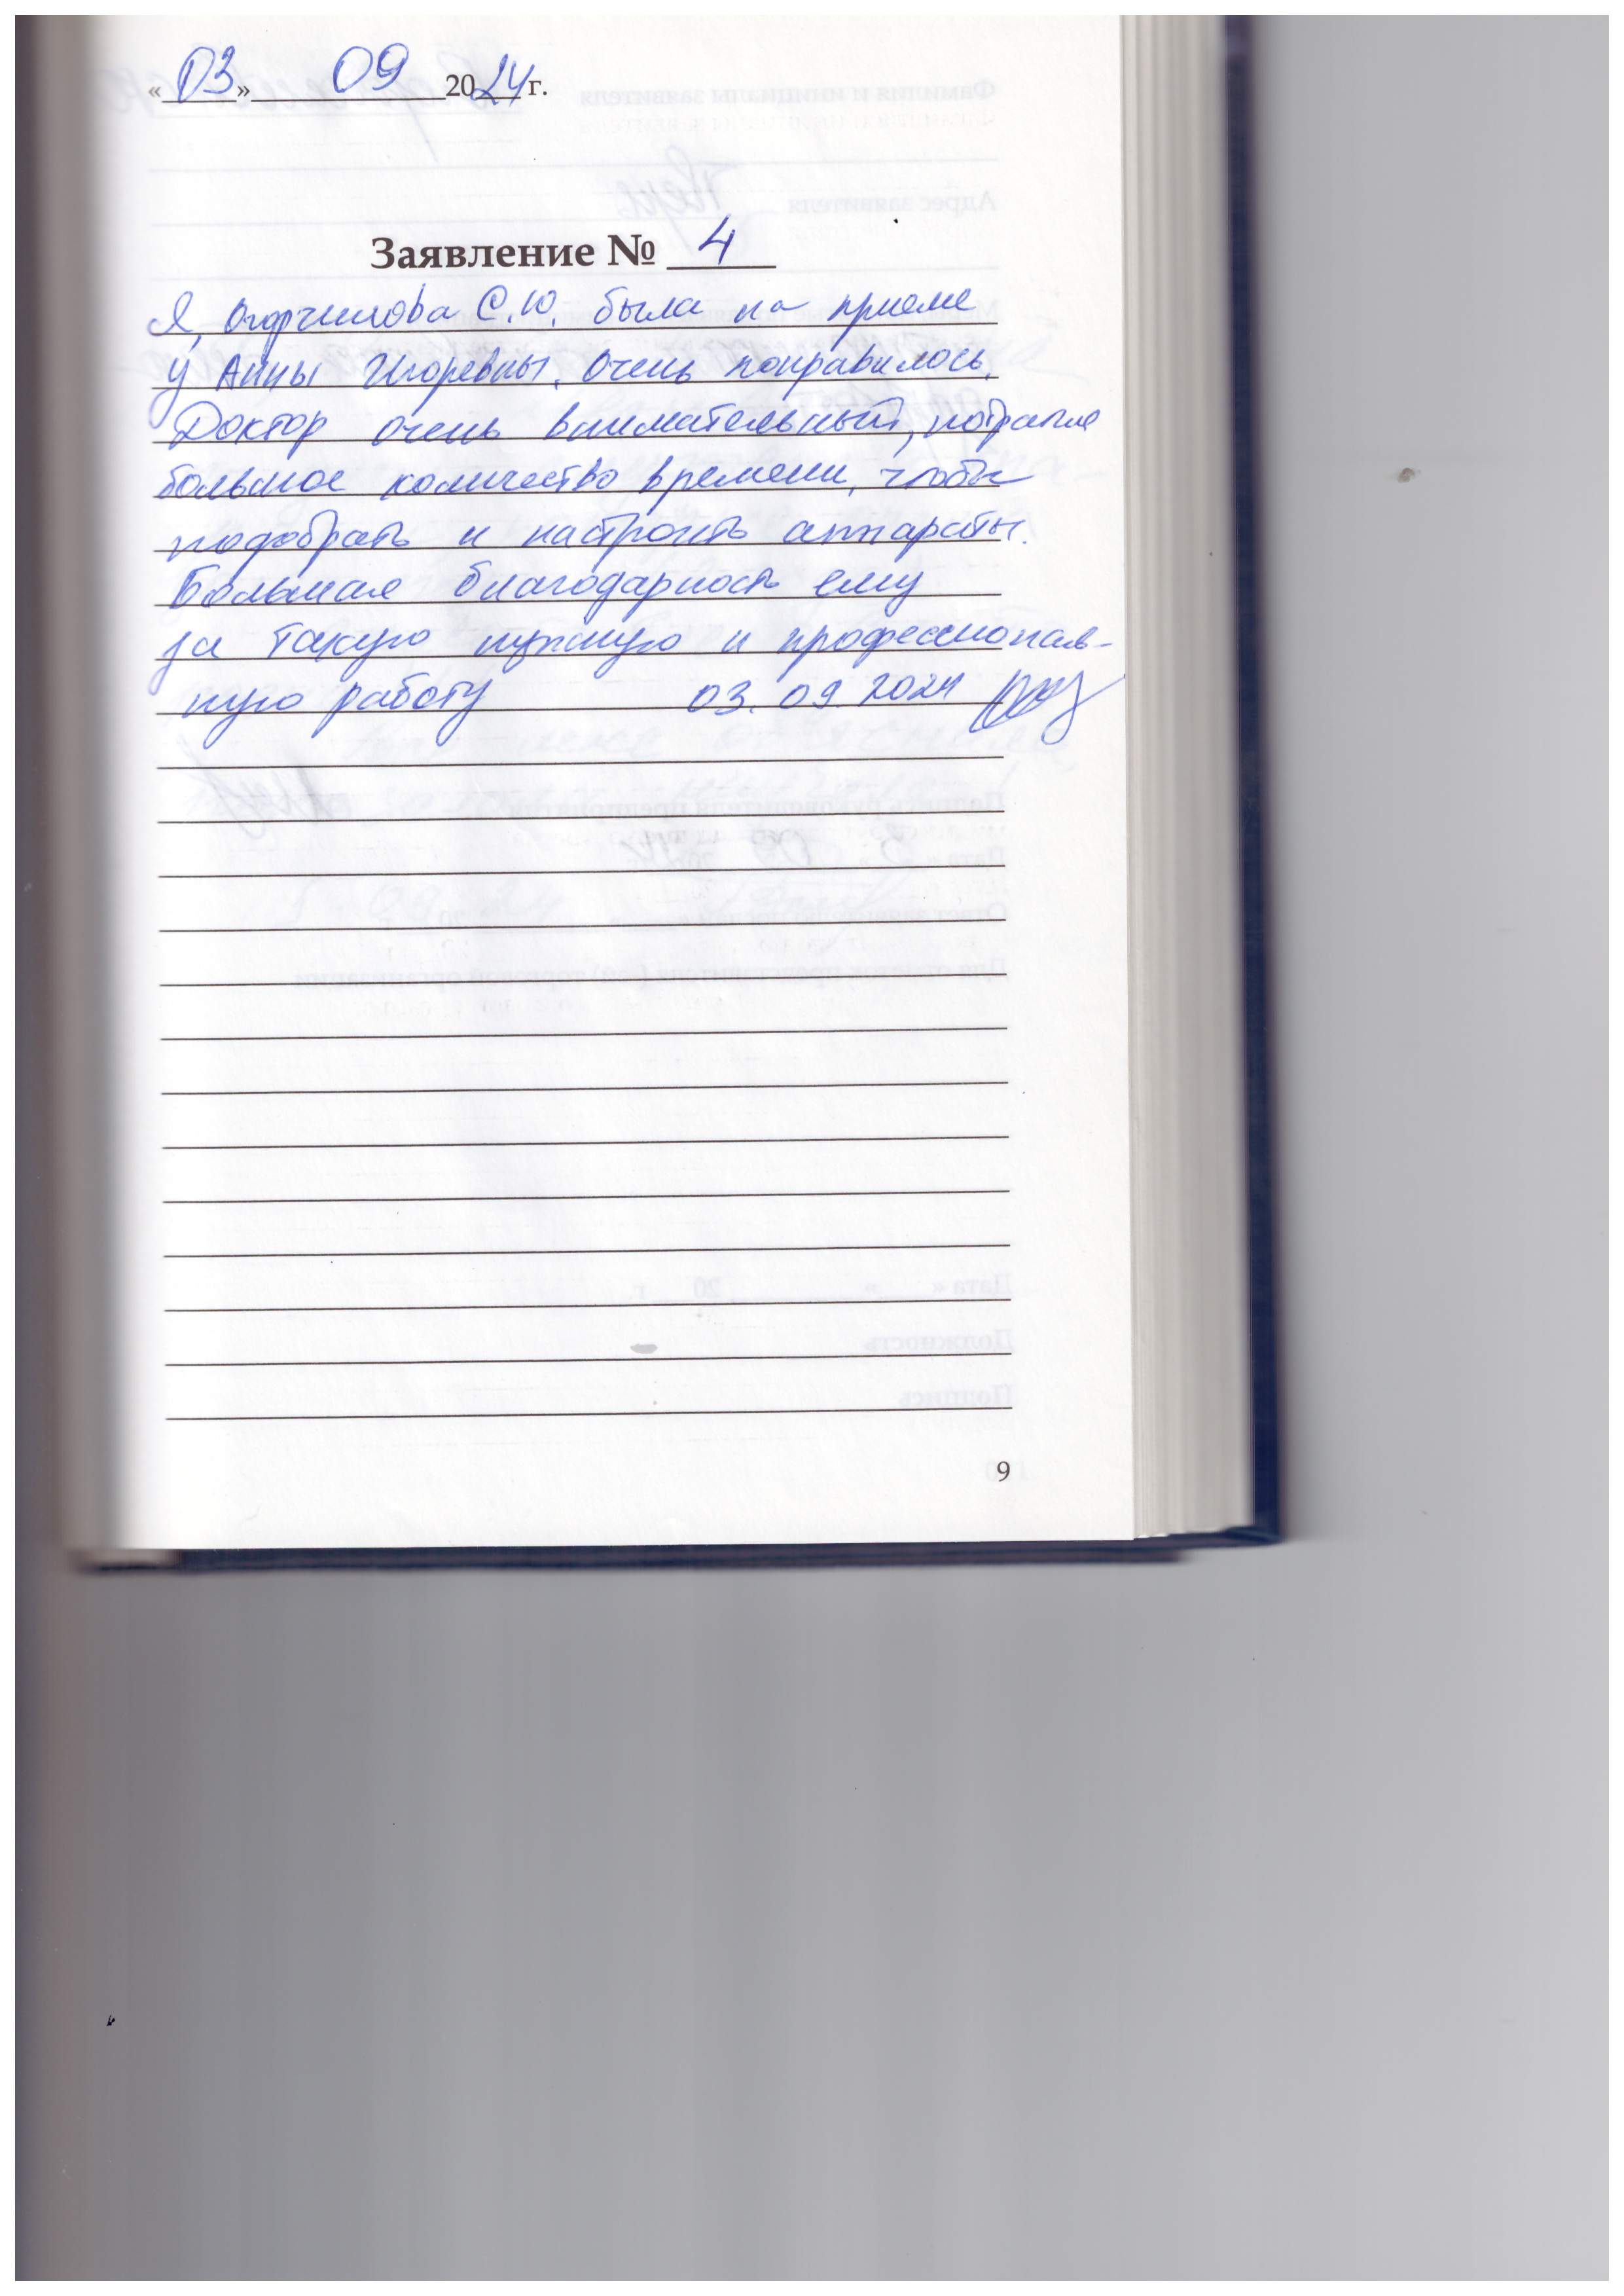 «03» 09 2024 г.
Заявление № 4
Я, С.Ю. была на приеме
у Анны Игоревны. Очень понравилось.
Доктор очень внимательный, потратил
большое количество времени, чтобы
подобрать и настроить аппараты.
Большая благодарность ему
за такую нужную и профессиональ-
ную работу 03.09.2024
9